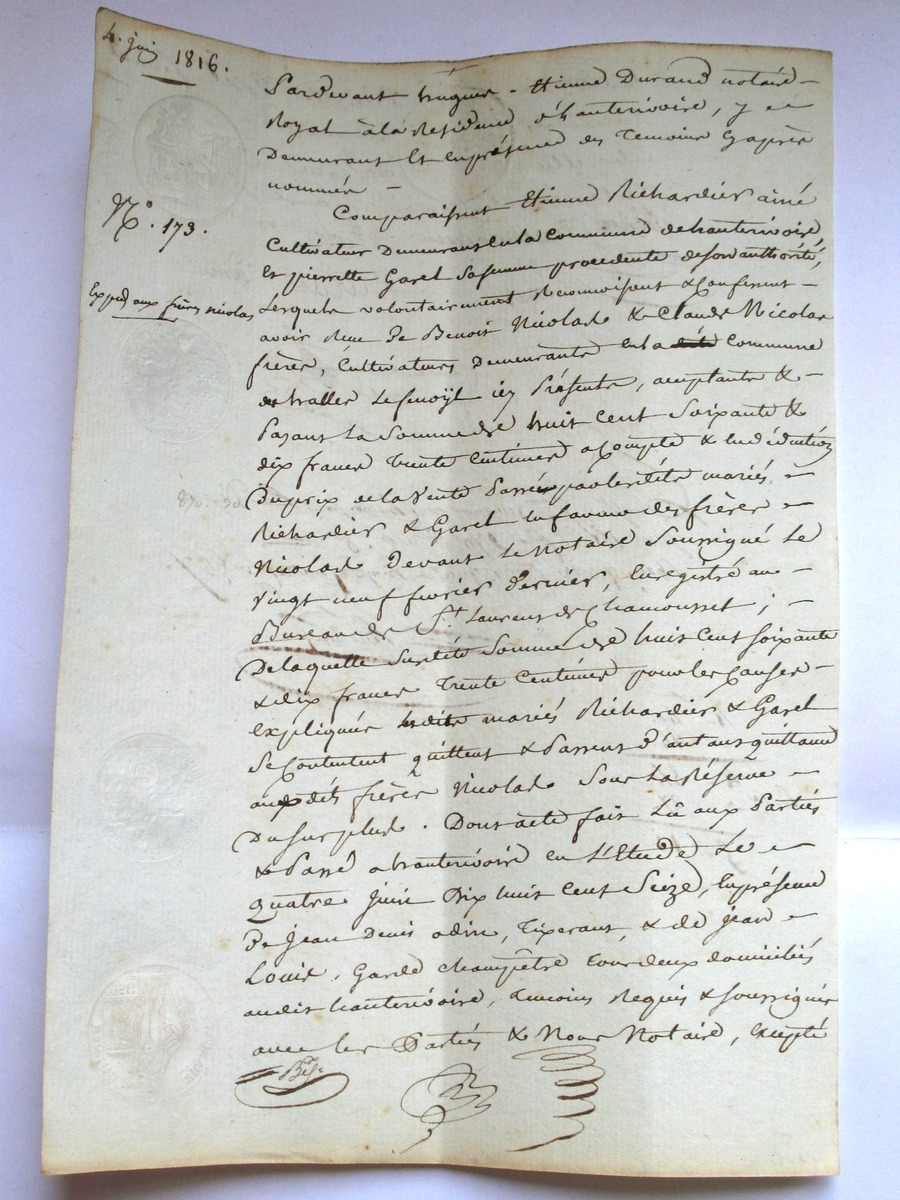 4. juin 1816.
Pardevant hugues - Etienne Durand notaire -
Royal à la Residence d'hauterivoire, y -
Demeurant Et en présence des Temoins Cy après
nommés -
N.º 173.
Comparaissent Etienne Richardier ainé
Cultivateur Demeurant en la Commune de hauterivoire,
Et pierrette Garel sa femme procedente de son authorité,
Exped aux frères nicolas
Lesquels volontairement Reconnoissent & Confessent -
avoir Reçu De Benoit Nicolas & Claude Nicolas
frères, Cultivateurs Demeurants en la Commune
de haller Le fenoÿl icy Présents, acceptants &
Payant La Somme de huit Cent Soixante &
dix francs Trente Centimes a Compte & en déduction
Du prix de la Vente Passée par lesdits mariés -
Richardier & Garel en faveur des frères -
Nicolas Devant Le Notaire Soussigné Le
Vingt neuf fevrier Dernier, Enregistré au -
Bureau de S.t Laurent de Chamousset ; -
De laquelle Susdite Somme de huit Cent Soixante
& dix francs Trente Centimes pour les Causes -
Expliquées lesdits mariés Richardier & Garel
Se Contentent quittent & Passent D'autant quittance
auxdits frères Nicolas Sous La Réserve -
Du Surplus. Dont acte fait Lû aux Parties
& Passé a hauterivoire en L'Etude Le -
Quatre juin Dix huit Cent Seize, En présence
De Jean Denis, Tixerant, & de jean -
Louis, Garde champêtre tous deux domiciliés
audit hauterivoire, Temoins Requis & Soussignés
avec les Parties & Nous Notaire, Excepté